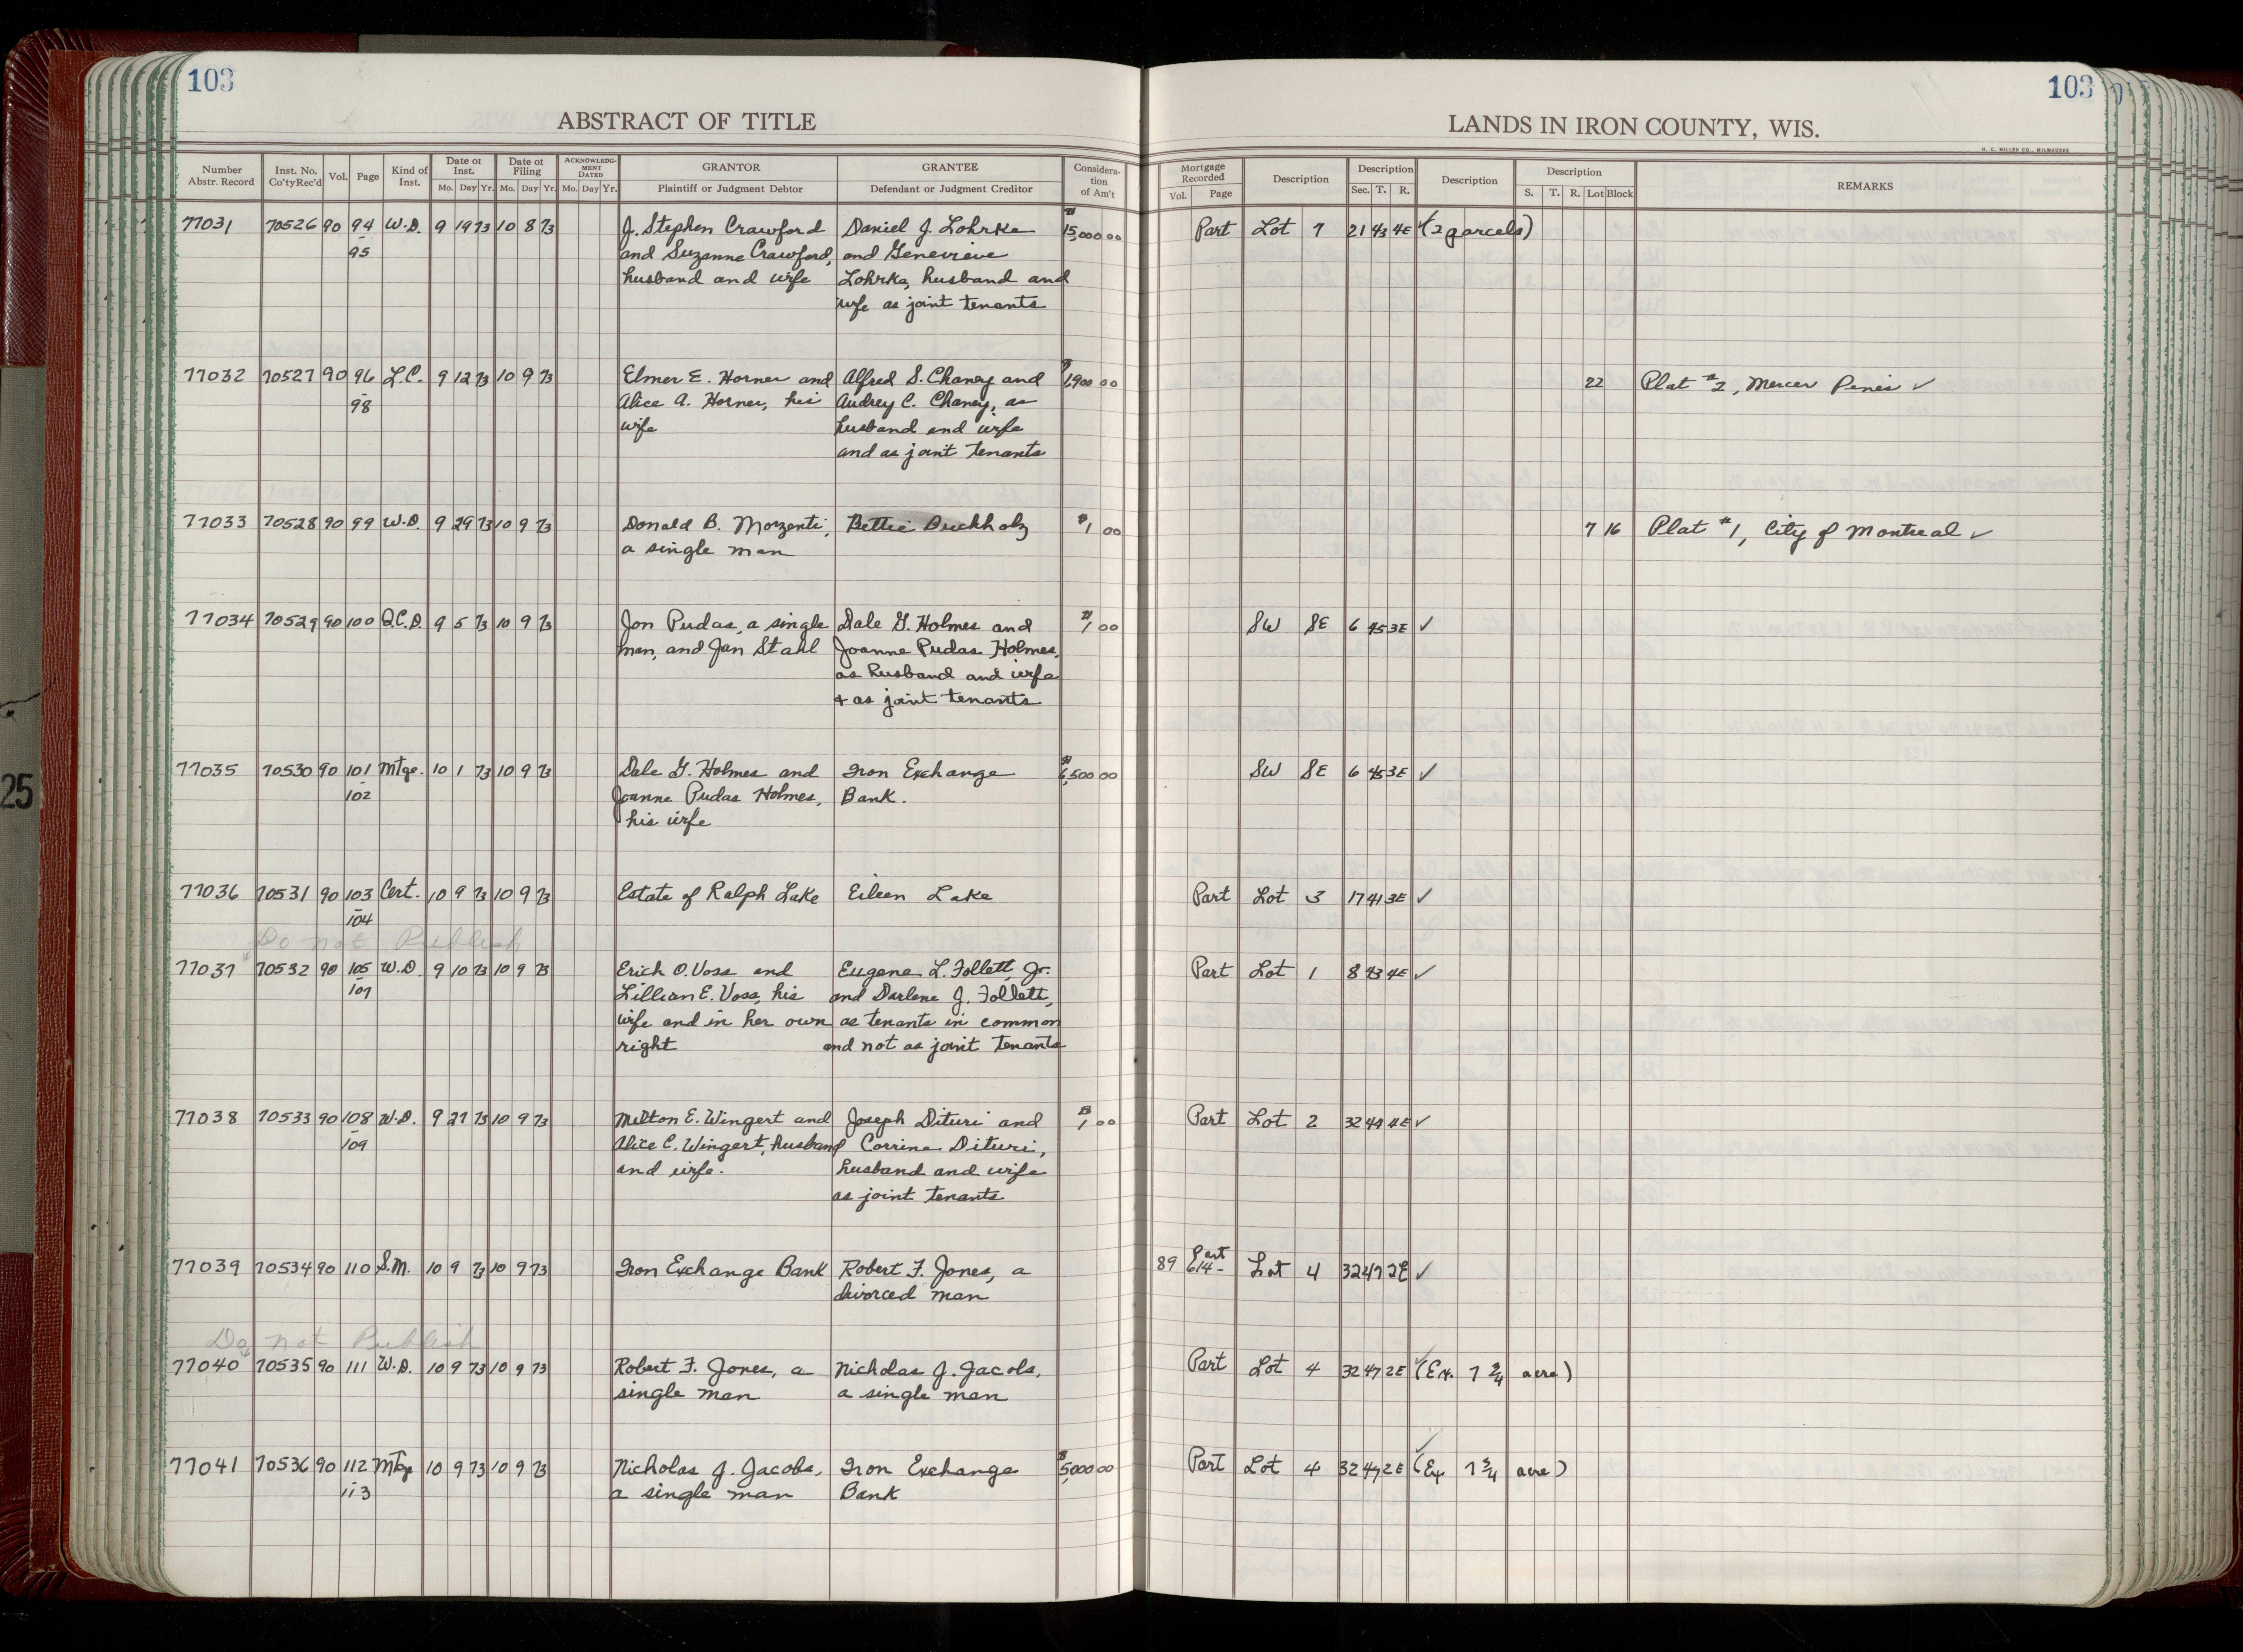 103
103
ABSTRACT OF TITLE
LANDS IN IRON COUNTY, WIS.
H. C. MILLER CO., MILWAUKEE
Number Abstr. Record | Inst. No. Co'ty Rec'd | Vol. | Page | Kind of Inst. | Date of Inst. Mo. Day Yr. | Date of Filing Mo. Day Yr. | ACKNOWLEDGMENT DATED Mo. Day Yr. | GRANTOR Plaintiff or Judgment Debtor | GRANTEE Defendant or Judgment Creditor | Consideration of Am't | Mortgage Recorded Vol. Page | Description | Description Sec. T. R. | Description | Description S. T. R. Lot Block | REMARKS
77031 70526 90 94 W.D. 9 19 73 10 8 73 J. Stephen Crawford Daniel J. Lohrke $15,000 00 Part Lot 7 21 43 4E ✓ (2 parcels)
- 95 and Suzanne Crawford, and Genevieve
husband and wife Lohrke, husband and
wife as joint tenants
77032 70527 90 96 L.C. 9 12 73 10 9 73 Elmer E. Horner and Alfred S. Chaney and $1,900 00 22 Plat #2, Mercer Pines ✓
- 98 Alice A. Horner, his Audrey C. Chaney, as
wife husband and wife
and as joint tenants
77033 70528 90 99 W.D. 9 29 73 10 9 73 Donald B. Morzenti, Bettie Buckholz $1 00 7 16 Plat #1, City of Montreal ✓
a single man
77034 70529 90 100 Q.C.D. 9 5 73 10 9 73 Jon Pudas, a single Dale G. Holmes and $1 00 SW SE 6 45 3E ✓
man, and Jan Stahl Joanne Pudas Holmes,
as husband and wife
+ as joint tenants
77035 70530 90 101 Mtge. 10 1 73 10 9 73 Dale G. Holmes and Iron Exchange $6,500 00 SW SE 6 45 3E ✓
- 102 Joanne Pudas Holmes, Bank.
his wife
77036 70531 90 103 Cert. 10 9 73 10 9 73 Estate of Ralph Lake Eileen Lake Part Lot 3 17 41 3E ✓
- 104
Do not Publish
77037 70532 90 105 W.D. 9 10 73 10 9 73 Erich O. Voss and Eugene L. Follett, Jr. Part Lot 1 8 43 4E ✓
- 107 Lillian E. Voss, his and Darlene J. Follett,
wife and in her own as tenants in common
right and not as joint tenants
77038 70533 90 108 W.D. 9 27 73 10 9 73 Milton E. Wingert and Joseph Dituri and $1 00 Part Lot 2 32 44 4E ✓
- 109 Alice C. Wingert, husband Corrine Dituri,
and wife. husband and wife
as joint tenants
77039 70534 90 110 S.M. 10 9 73 10 9 73 Iron Exchange Bank Robert F. Jones, a 89 614- Part Lot 4 32 47 2E ✓
divorced man
Do not Publish
77040 70535 90 111 W.D. 10 9 73 10 9 73 Robert F. Jones, a Nicholas J. Jacobs, Part Lot 4 32 47 2E ✓ (Ex. 7 3/4 acre)
single man a single man
77041 70536 90 112 Mtge 10 9 73 10 9 73 Nicholas J. Jacobs, Iron Exchange $5,000 00 Part Lot 4 32 47 2E ✓ (Ex 7 3/4 acre)
- 113 a single man Bank
25